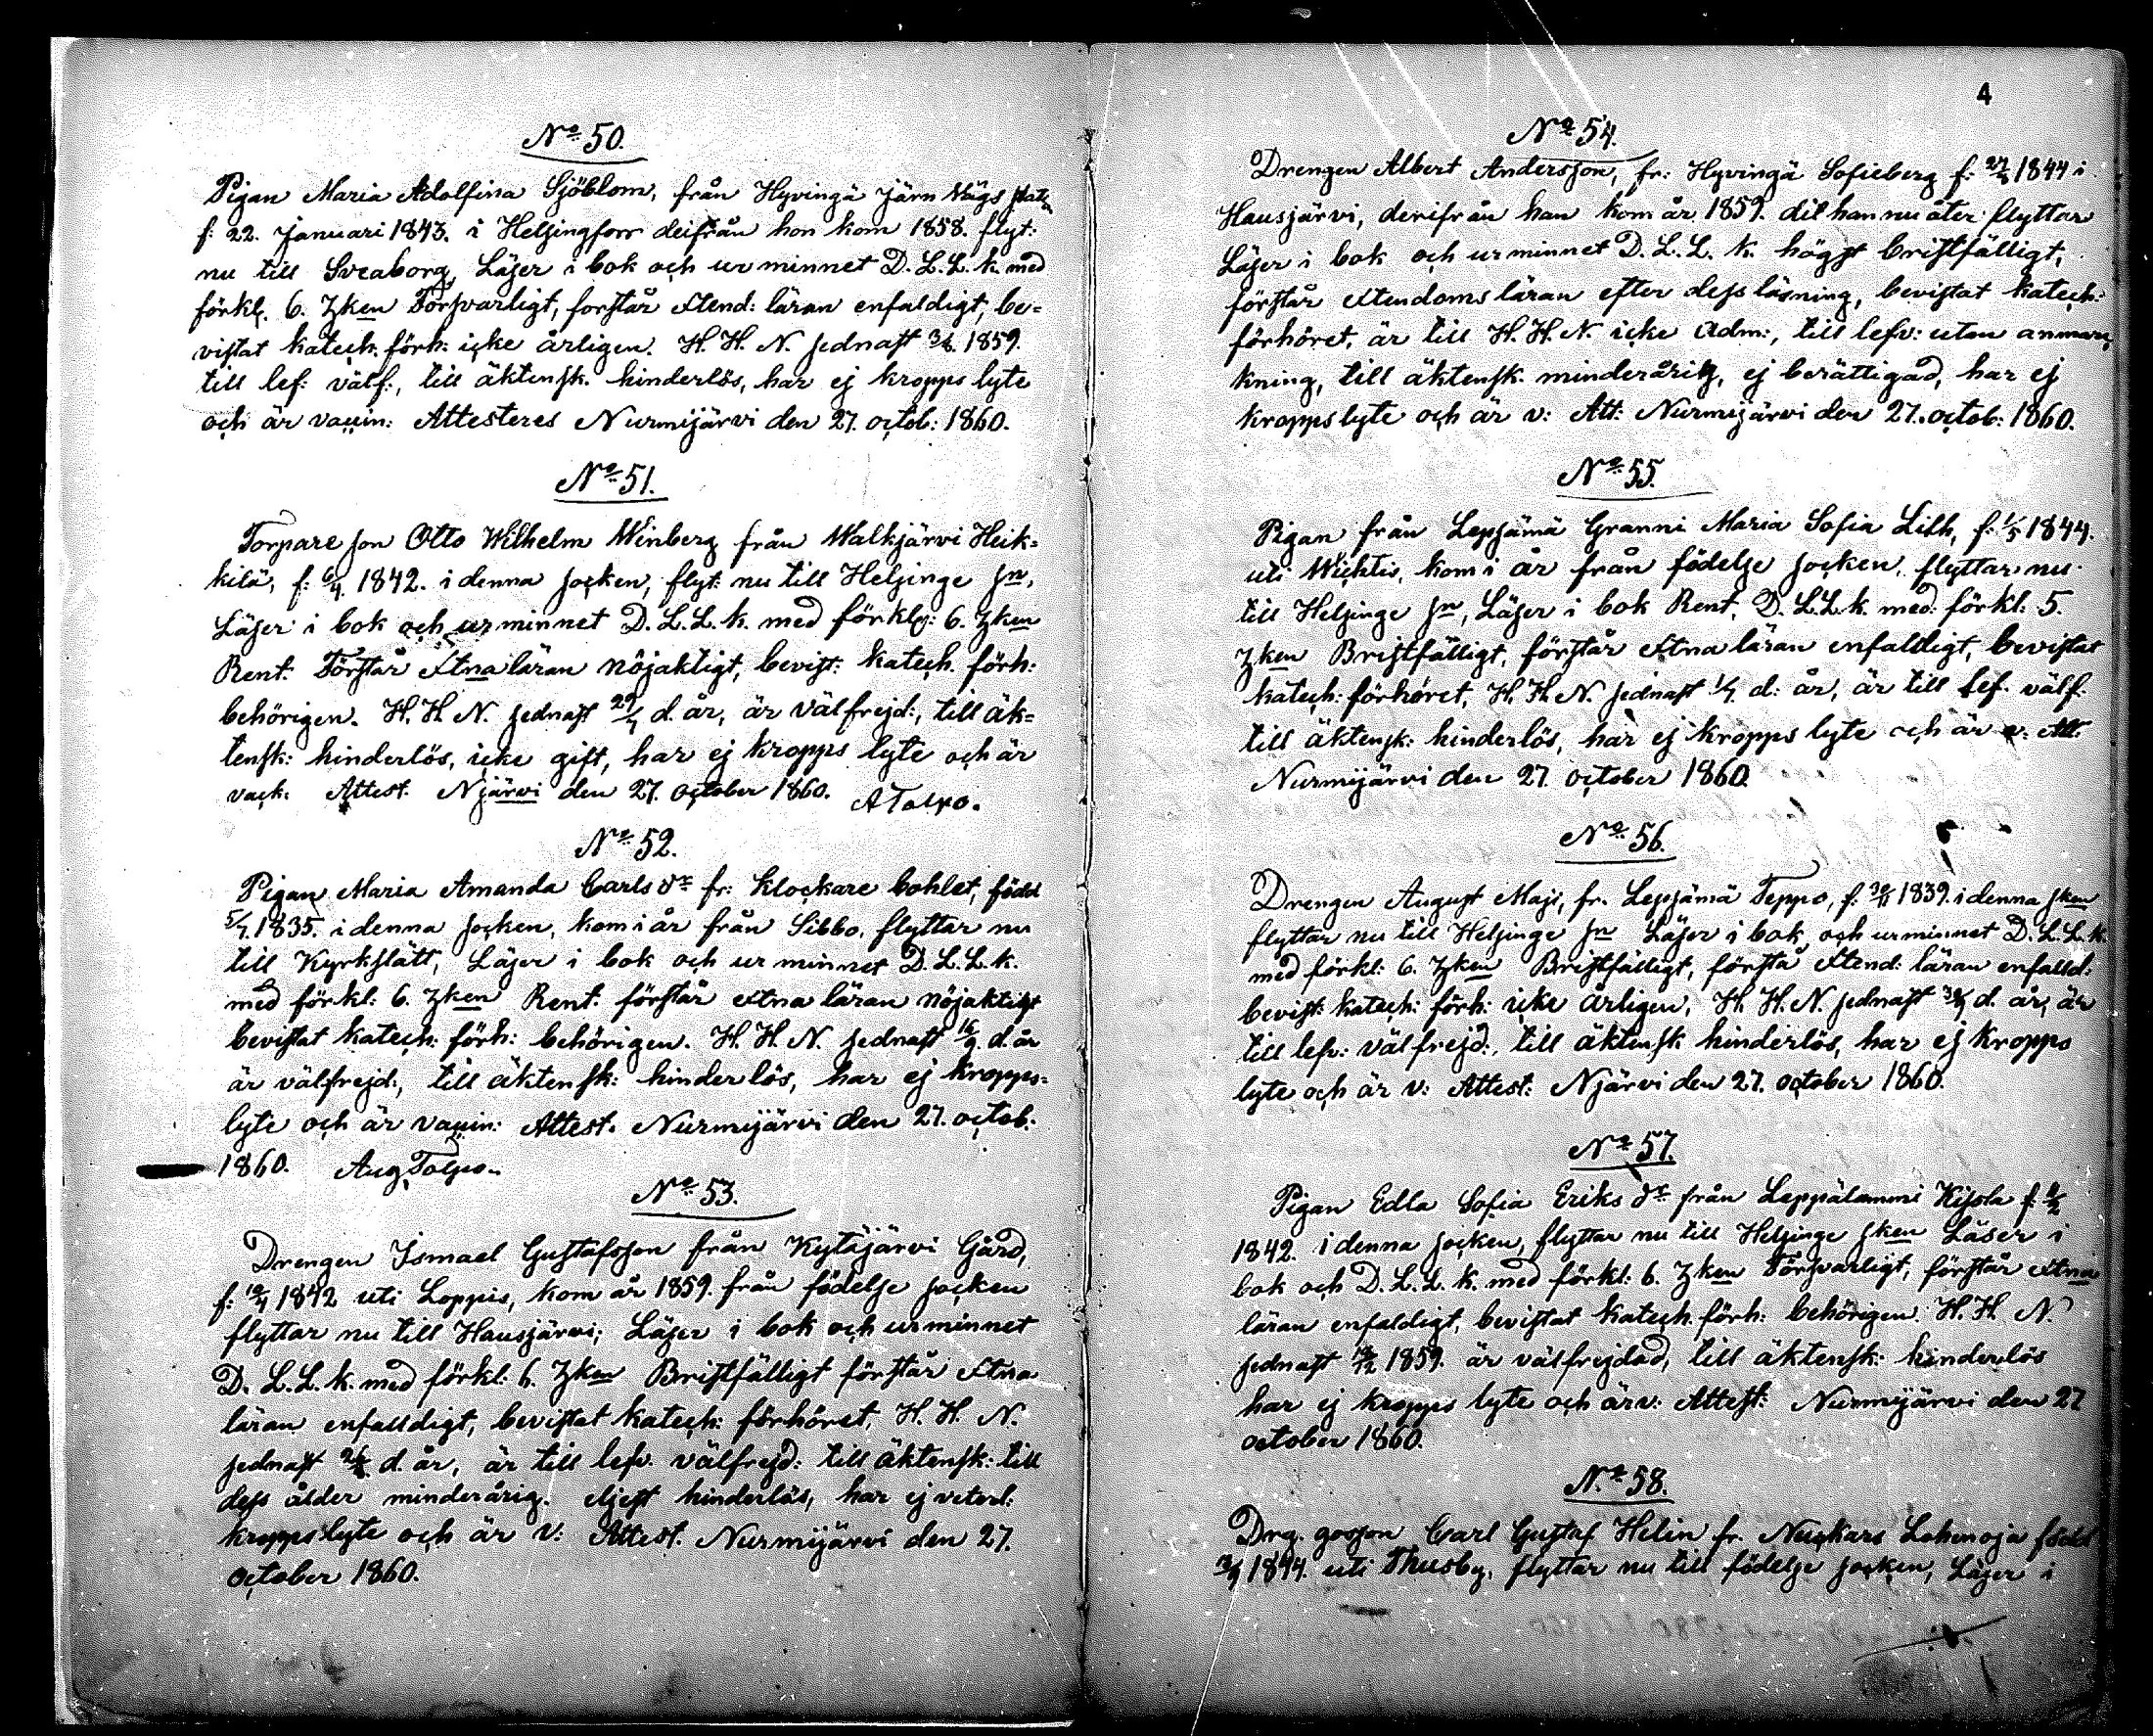 No 50.
Pigan Maria Adolfina Sjöblom, från Hyvingä Järn Vägs stat:
f: 22. Januari 1843. i Helsingfors deifrån hon kom 1858. flyt:
nu till Sveaborg, Läser i bok och ur minnet D. L. L. k. med
förkl. 6. Zken Försvarligt, forstår Xtend: läran enfaldigt, be=
vistat katech. förh: icke årligen. H. H. N. sednast 3/6. 1859.
till lef: välf:, till äktensk. hinderlös, har ej kropps lyte
och är vaccin: Attesteres Nurmijärvi den 27. octob: 1860.
No 51.
Torpare son Otto Wilhelm Winberg från Walkjärvi Heik=
kilä, f: 6/4 1842. i denna socken, flyt: nu till Helsinge sn,
Läser i bok och ur minnet D. L. L. k. med förklg: 6. Zken
Rent. Förstår Xtna läran nöjaktigt, bevist: katech. förh:
behörigen. H. H. N. sednast 29/4 d. år, är välfrejd:, till äk=
tensk: hinderlös, icke gift, har ej kropps lyte och är
vack: Attest. Njärvi den 27. october 1860. A Tolpo.
No 52.
Pigan Maria Amanda Carls dr fr: Klockare bohlet, född
5/7. 1835. i denna socken, kom i år från Sibbo, flyttar nu
till Kyrkslätt, Läser i bok och ur minnet D. L. L. k.
med förkl: 6. Zken Rent. förstår Xtna läran nöjaktigt
bevistat katech: förh: behörigen. H. H. N. sednast 16/9 d. år
är välfrejd:, till äktensk: hinderlös, har ej kropps=
lyte och är vaccin: Attest. Nurmijärvi den 27. octob:
1860. Aug Tolpo.
No 53.
Drengen Ismael Gustafsson från Kytäjärvi Gård,
f: 19/4 1842 uti Loppis, kom år 1859. från födelse socken
flyttar nu till Hausjärvi; Läser i bok och ur minnet
D. L. L. k. med förkl: 6. Zken Bristfälligt förstår Xtna
läran enfalldigt, bevistat katech: förhöret, H. H. N.
sednast d. år, är till lefv. välfrejd: till äktensk: till
dess ålder minderårig. eljest hinderlös, har ej veterl:
kroppslyte och är v: Attest. Nurmijärvi den 27.
october 1860.
4
No 54.
Drengen Albert Andersson, fr: Hyvingä Sofieberg f: 1844 i
Hausjärvi, derifrån han kom år 1859. dit han nu åter flyttar
Läser i bok och ur minnet D. L. L. k. högst bristfälligt,
förstår Xtendoms läran efter dess läsning, bevistat katech:
förhöret, är till H. H. N. icke adm:, till lefv: utan anmär
kning, till äktensk. minderårig, ej berättigad, har ej
kroppslyte och är v: Att: Nurmijärvi den 27. octob: 1860.
No 55.
Pigan från Lepsämä Granni Maria Sofia Lilh, f: 1/5 1844.
uti Wichtis, kom i år från födelse socken, flyttar nu
till Helsinge sn, Läser i bok Rent, D. L. L. k. med förkl: 5.
Zken Bristfälligt, förstår Xtna läran enfaldigt, bevistat
katech: förhöret, H. H. N. sednast 1/7 d: år, är till lef. välf.
till äktensk: hinderlös, har ej kropps lyte och är v: Att.
Nurmijärvi den 27. october 1860.
No 56.
Drengen August Majs, fr. Lepsämä Teppo, f: 1839. i denna sken
flyttar nu till Helsinge sn Läser i bok och ur minnet D. L. L. k.
med förkl: 6. Zken Bristfälligt, förstå Xtend: läran enfalld:
bevist: katech: förh: icke årligen, H. H. N. sednast d. år, är
till lefv: välfrejd:, till äktensk hinderlös, har ej kropps
lyte och är v: Attest: Njärvi den 27. october 1860.
No 57.
Pigan Edla Sofia Eriks dr från Leppälammi Kissla f:
1842. i denna socken, flyttar nu till Helsinge sken Läser i
bok och D. L. L. k. med förkl: 6. Zken Försvarligt, förstår Xtna
läran enfaldigt, bevistat katech. förh: behörigen. H. H. N.
sednast 1859. är välfrejdad, till äktensk: hinderlös
har ej kropps lyte och är v: Attest: Nurmijärvi den 27
october 1860.
No 58.
Drg. gosson Carl Gustaf Helin fr. Nuckars Lohenoja född
1844. uti Thusby, flyttar nu till födelse socken, Läser i